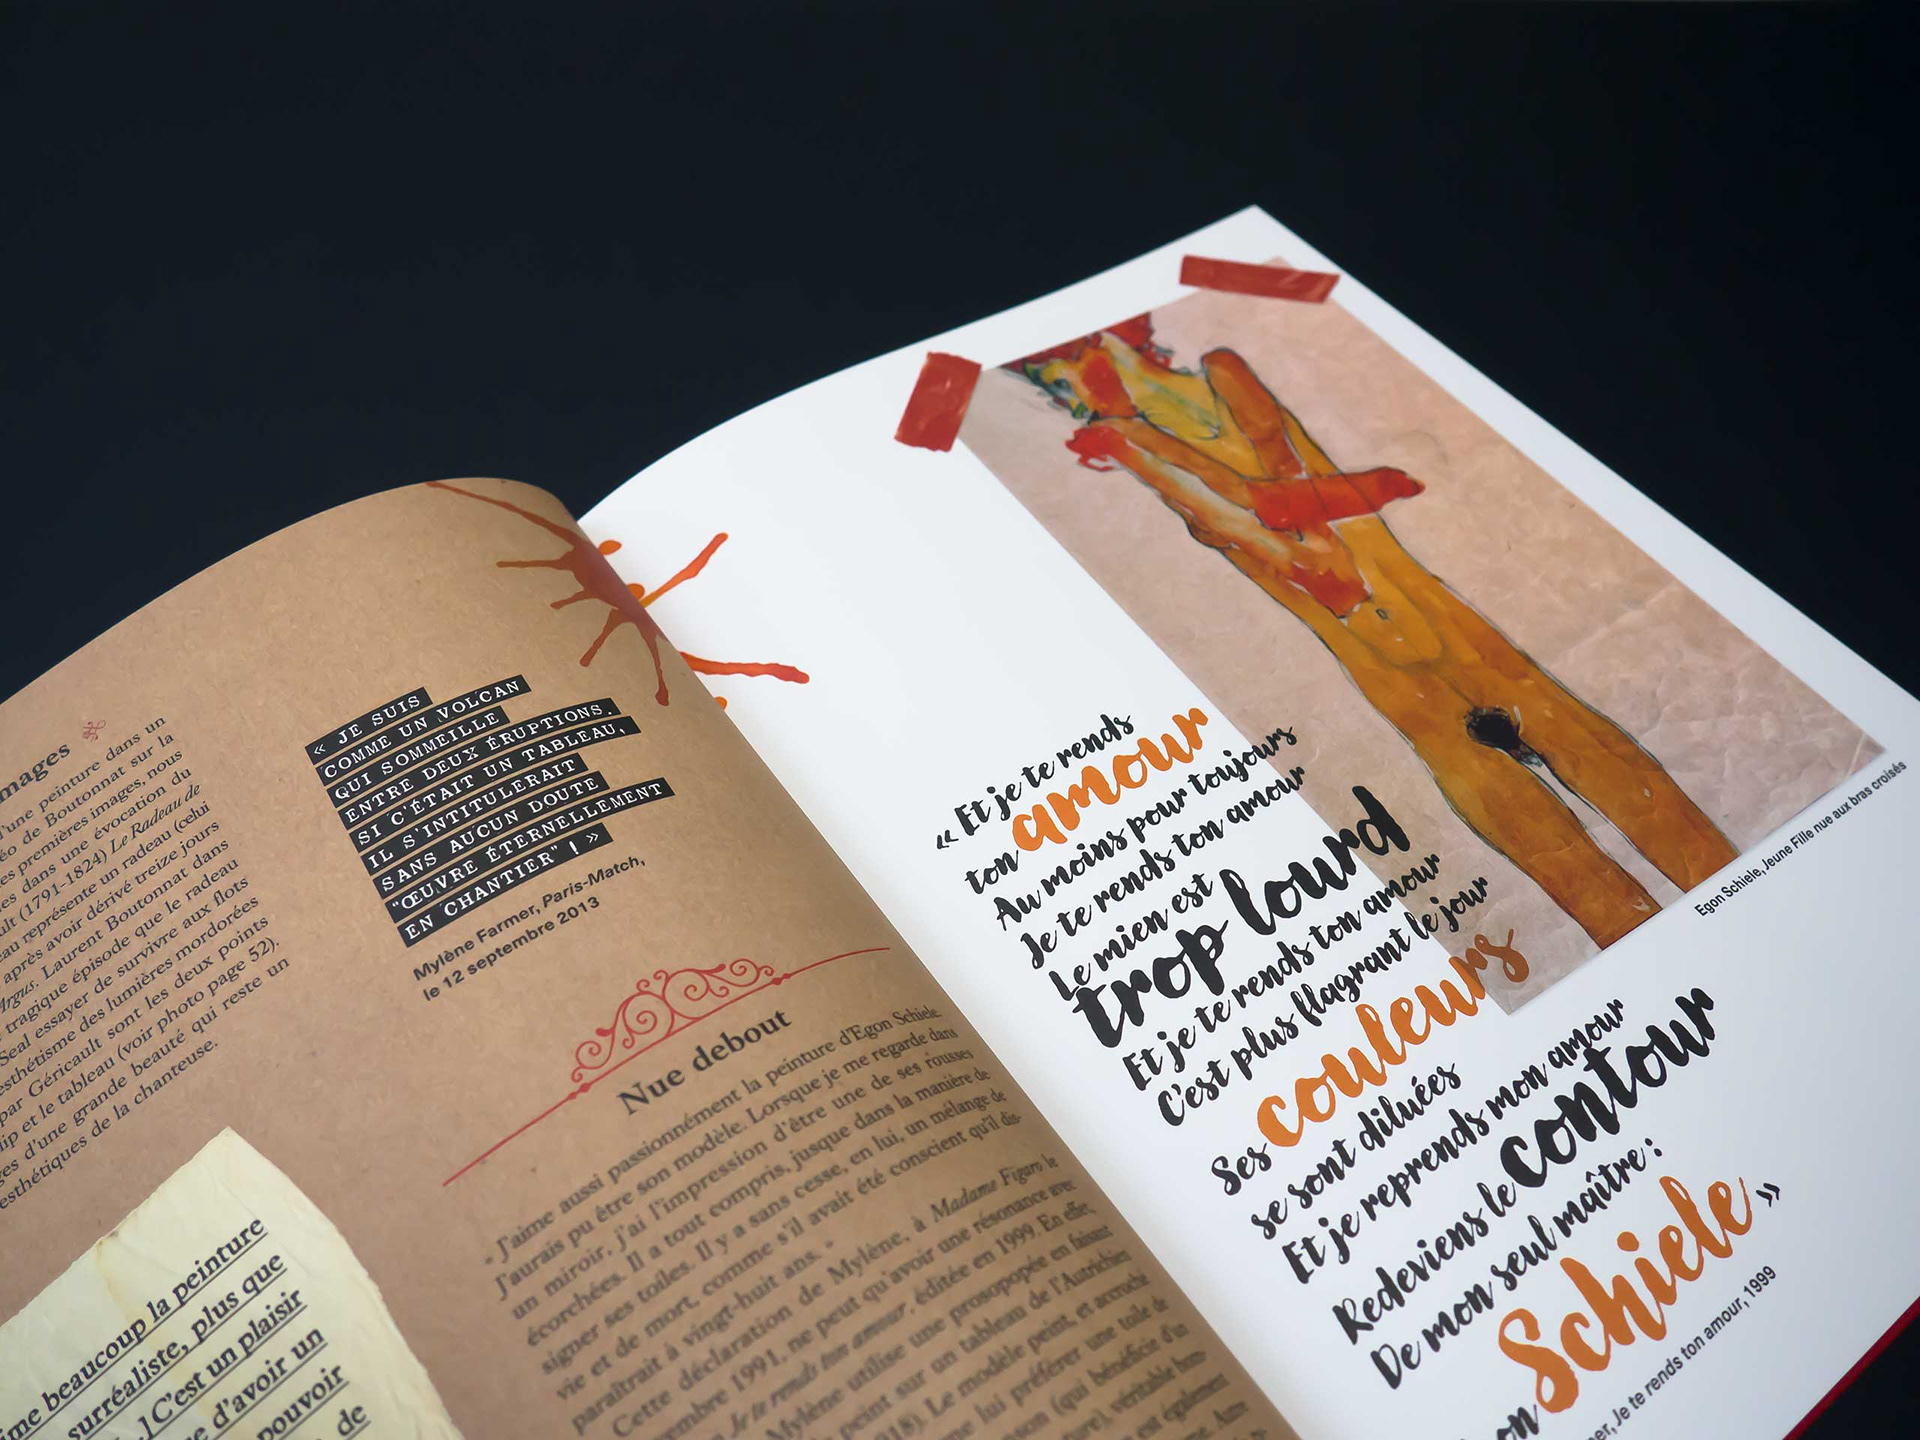 mages
d'une peinture dans un
éo de Boutonnat sur la
es premières images, nous
es dans une évocation du
ult (1791-1824) Le Radeau de
au représente un radeau (celui
après avoir dérivé treize jours
Argus. Laurent Boutonnat dans
tragique épisode que le radeau
Seal essayer de survivre aux flots
esthétisme des lumières mordorées
par Géricault sont les deux points
lip et le tableau (voir photo page 52).
ges d'une grande beauté qui reste un
esthétiques de la chanteuse.
ime beaucoup la peinture
surréaliste, plus que
..] C'est un plaisir
e d'avoir un
pouvoir
de
« JE SUIS
COMME UN VOLCAN
QUI SOMMEILLE
ENTRE DEUX ÉRUPTIONS.
SI C'ÉTAIT UN TABLEAU,
IL S'INTITULERAIT
SANS AUCUN DOUTE
"ŒUVRE ÉTERNELLEMENT
EN CHANTIER" ! »
Mylène Farmer, Paris-Match,
le 12 septembre 2013
Nue debout
« J'aime aussi passionnément la peinture d'Egon Schiele.
J'aurais pu être son modèle. Lorsque je me regarde dans
un miroir, j'ai l'impression d'être une de ses rousses
écorchées. Il a tout compris, jusque dans la manière de
signer ses toiles. Il y a sans cesse, en lui, un mélange de
vie et de mort, comme s'il avait été conscient qu'il dis-
paraîtrait à vingt-huit ans. »
Cette déclaration de Mylène, à Madame Figaro le
vembre 1991, ne peut qu'avoir une résonance avec
Je te rends ton amour, éditée en 1999. En effet,
Mylène utilise une prosopopée en faisant
peint sur un tableau de l'Autrichien
18). Le modèle peint, et accroché
me lui préférer une toile de
son (qui bénéficie d'un
ture), véritable
est également
« Et je te rends
ton amour
Au moins pour toujours
Je te rends ton amour
Le mien est
trop lourd
Et je te rends ton amour
C'est plus flagrant le jour
Ses couleurs
se sont diluées
Et je reprends mon amour
Redeviens le contour
De mon seul maître :
on Schiele »
mer, Je te rends ton amour, 1999
Egon Schiele, Jeune Fille nue aux bras croisés